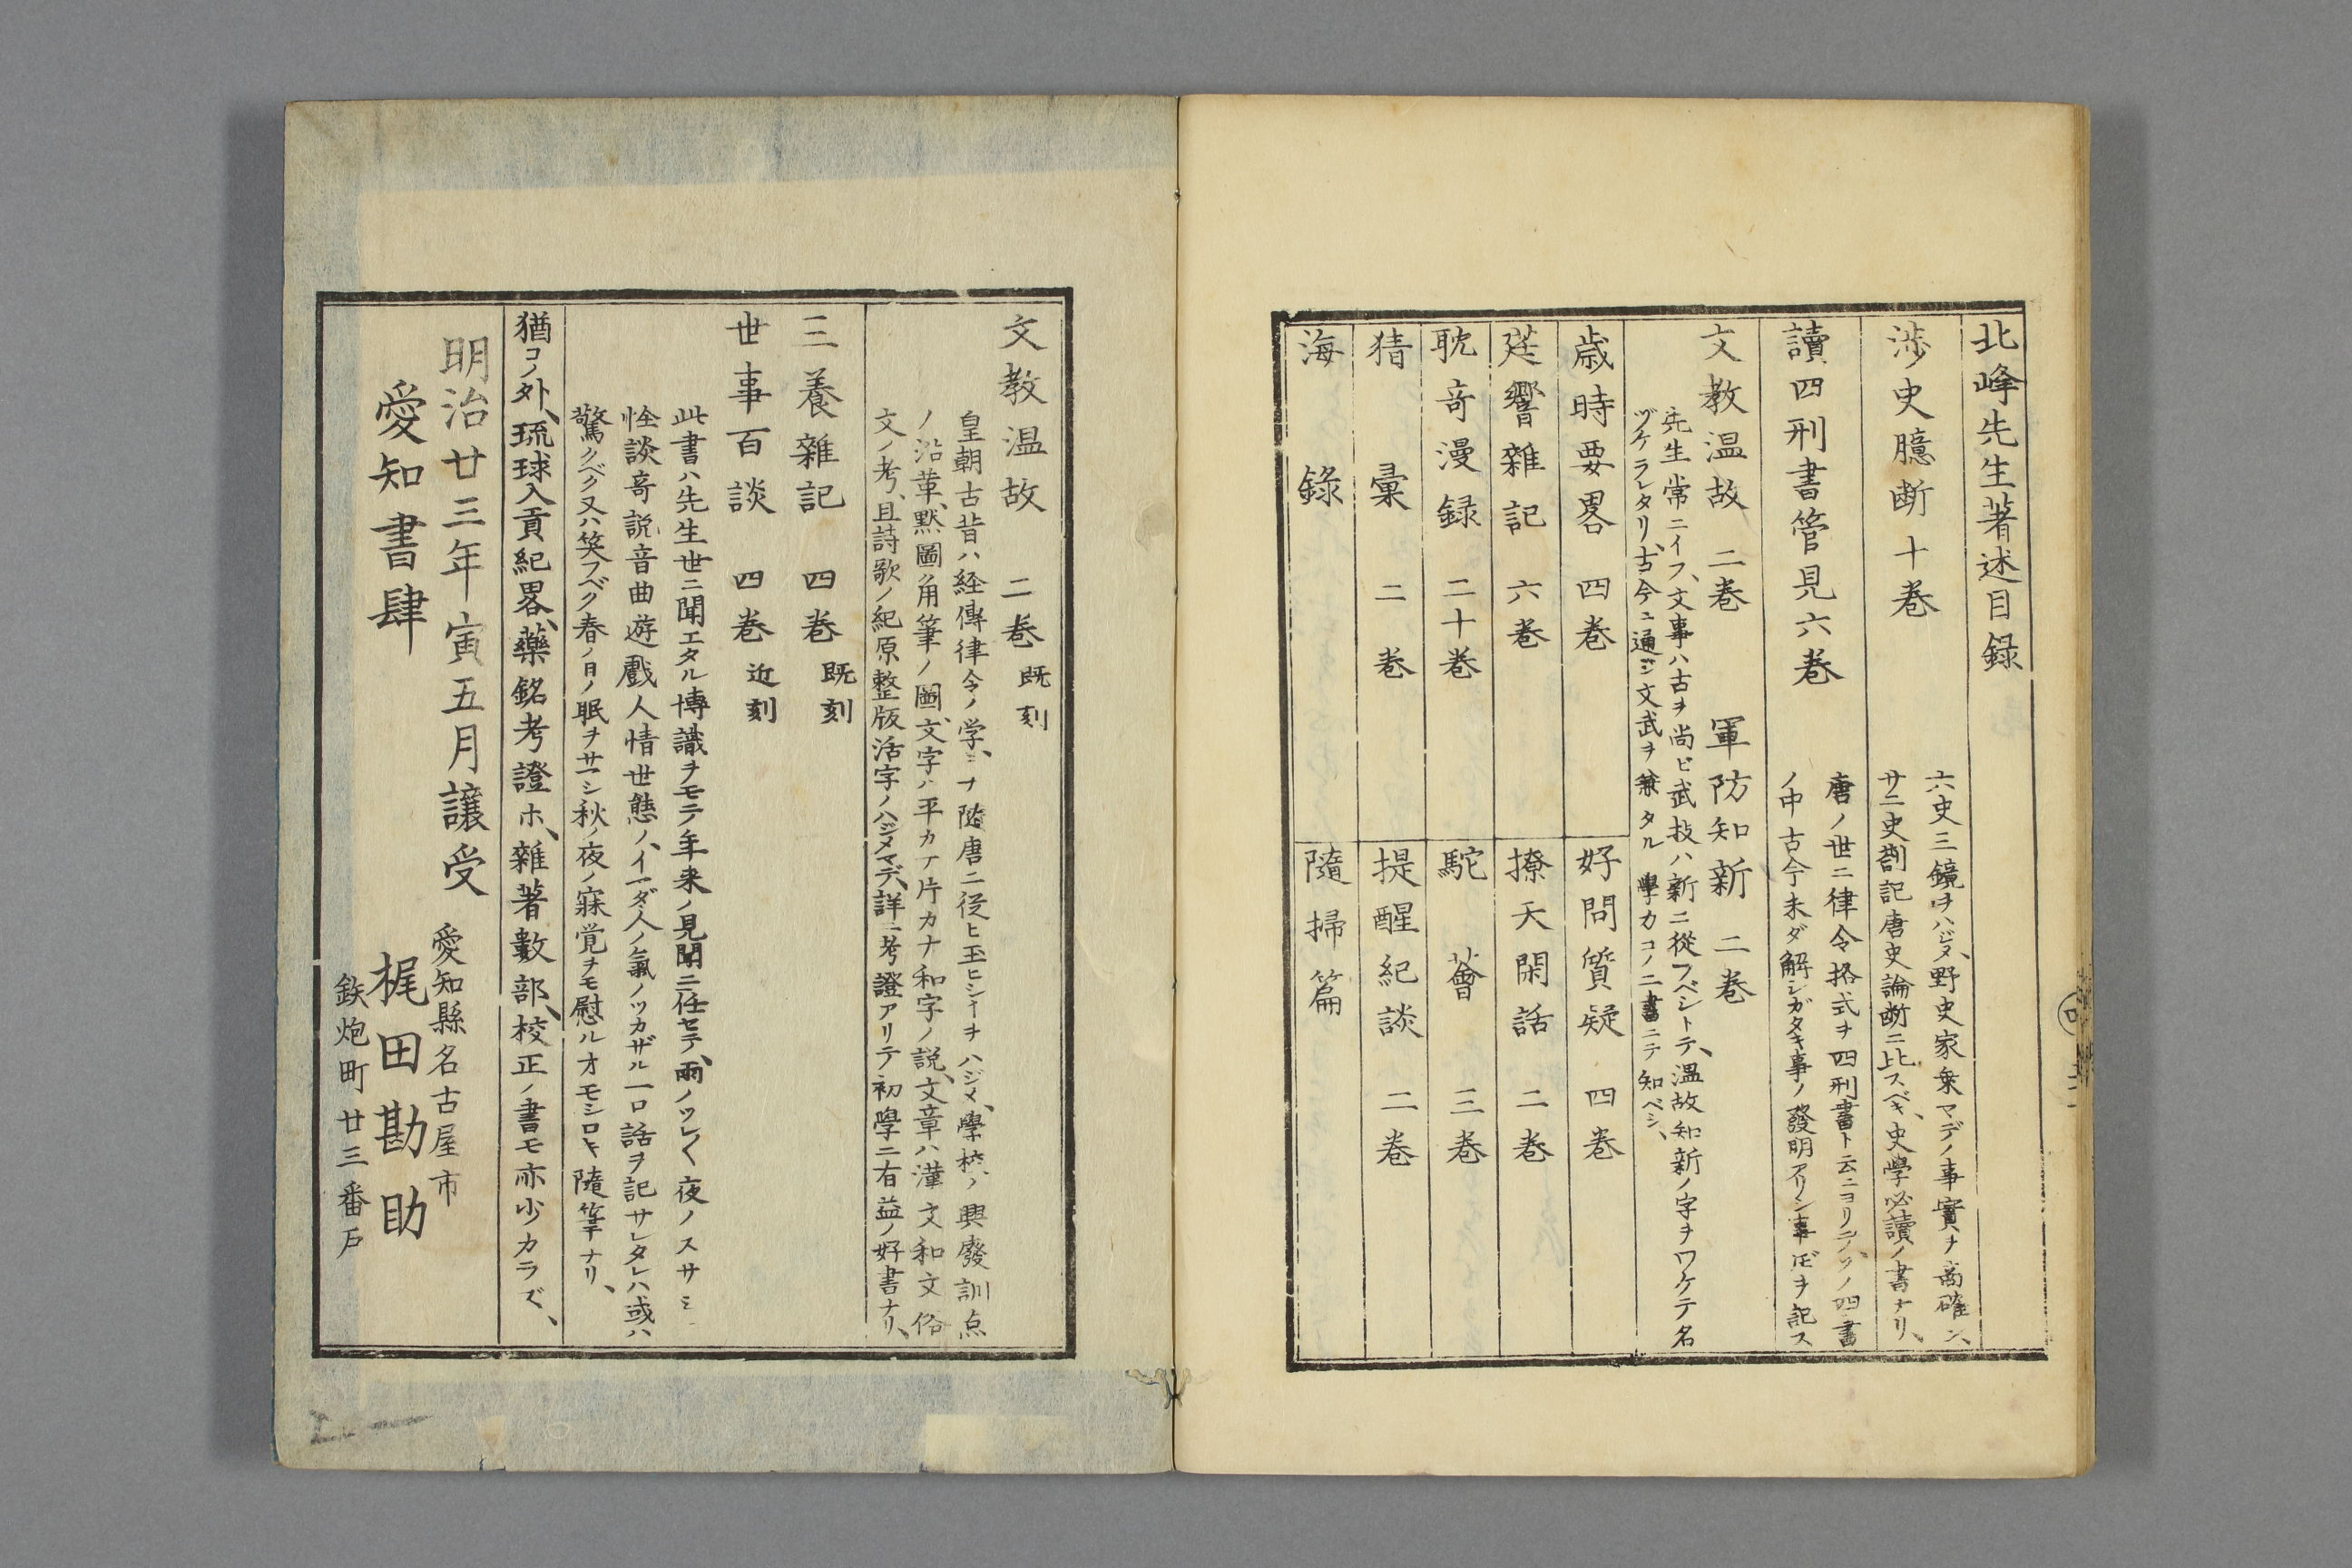 北峰先生著述目録
渉史臆断十巻
六史三鏡ヲハジメ、野史家乗マデノ事實ヲ商確シ、
廿二史劄記唐史論断ニ比スベキ、史學必讀ノ書ナリ、
讀四刑書管見六巻
唐ノ世ニ律令格式ヲ四刑書ト云ニヨリテ、ソノ四書
ノ中古今未ダ解シガタキ事ノ發明アリシ事𪜈ヲ記ス
文教温故 二巻 軍防知新 二巻
先生常ニイフ、文事ハ古ヲ尚ビ武技ハ新ニ從フベシトテ、温故知新ノ字ヲワケテ名
ヅケラレタリ、古今ニ通ジ文武ヲ兼タル學力コノ二書ニテ知ベシ、
歳時要畧 四巻
好問質疑 四巻
莛響雜記 六巻
撩天閑話 二巻
耽奇漫録 二十巻
駝薈 三巻
猜彙 二巻
提醒紀談 二巻
海錄
隨掃篇
文教温故 二巻 既刻
皇朝古昔ハ経傳律令ノ学、ミナ隨唐ニ從ヒ玉ヒシヿヲハジメ、學校ノ興廢訓点
ノ沿革、黙圖角筆ノ圖、文字ハ平カナ片カナ和字ノ説、文章ハ漢文和文俗
文ノ考、且詩歌ノ紀原整版活字ノハジメマデ、詳ニ考證アリテ初學ニ有益ノ好書ナリ、
三養雜記 四巻 既刻
世事百談 四巻 近刻
此書ハ先生世ニ聞エタル博識ヲモテ年来ノ見聞ニ任セテ、雨ノツレ〱夜ノスサミ
怪談奇説音曲遊戲人情世態ノ、イマダ人ノ氣ノツカザル一口話ヲ記サレタレハ或ハ
驚クベク又ハ笑フベク春ノ日ノ眠ヲサマシ秋ノ夜ノ寐覚ヲモ慰ルオモシロキ隨筆ナリ、
猶コノ外、琉球入貢紀畧、藥銘考證ホ、雜著數部、校正ノ書モ亦少カラズ、
明治廿三年寅五月讓受
愛知書肆
愛知縣名古屋市
梶田勘助
鉄炮町廿三番戸